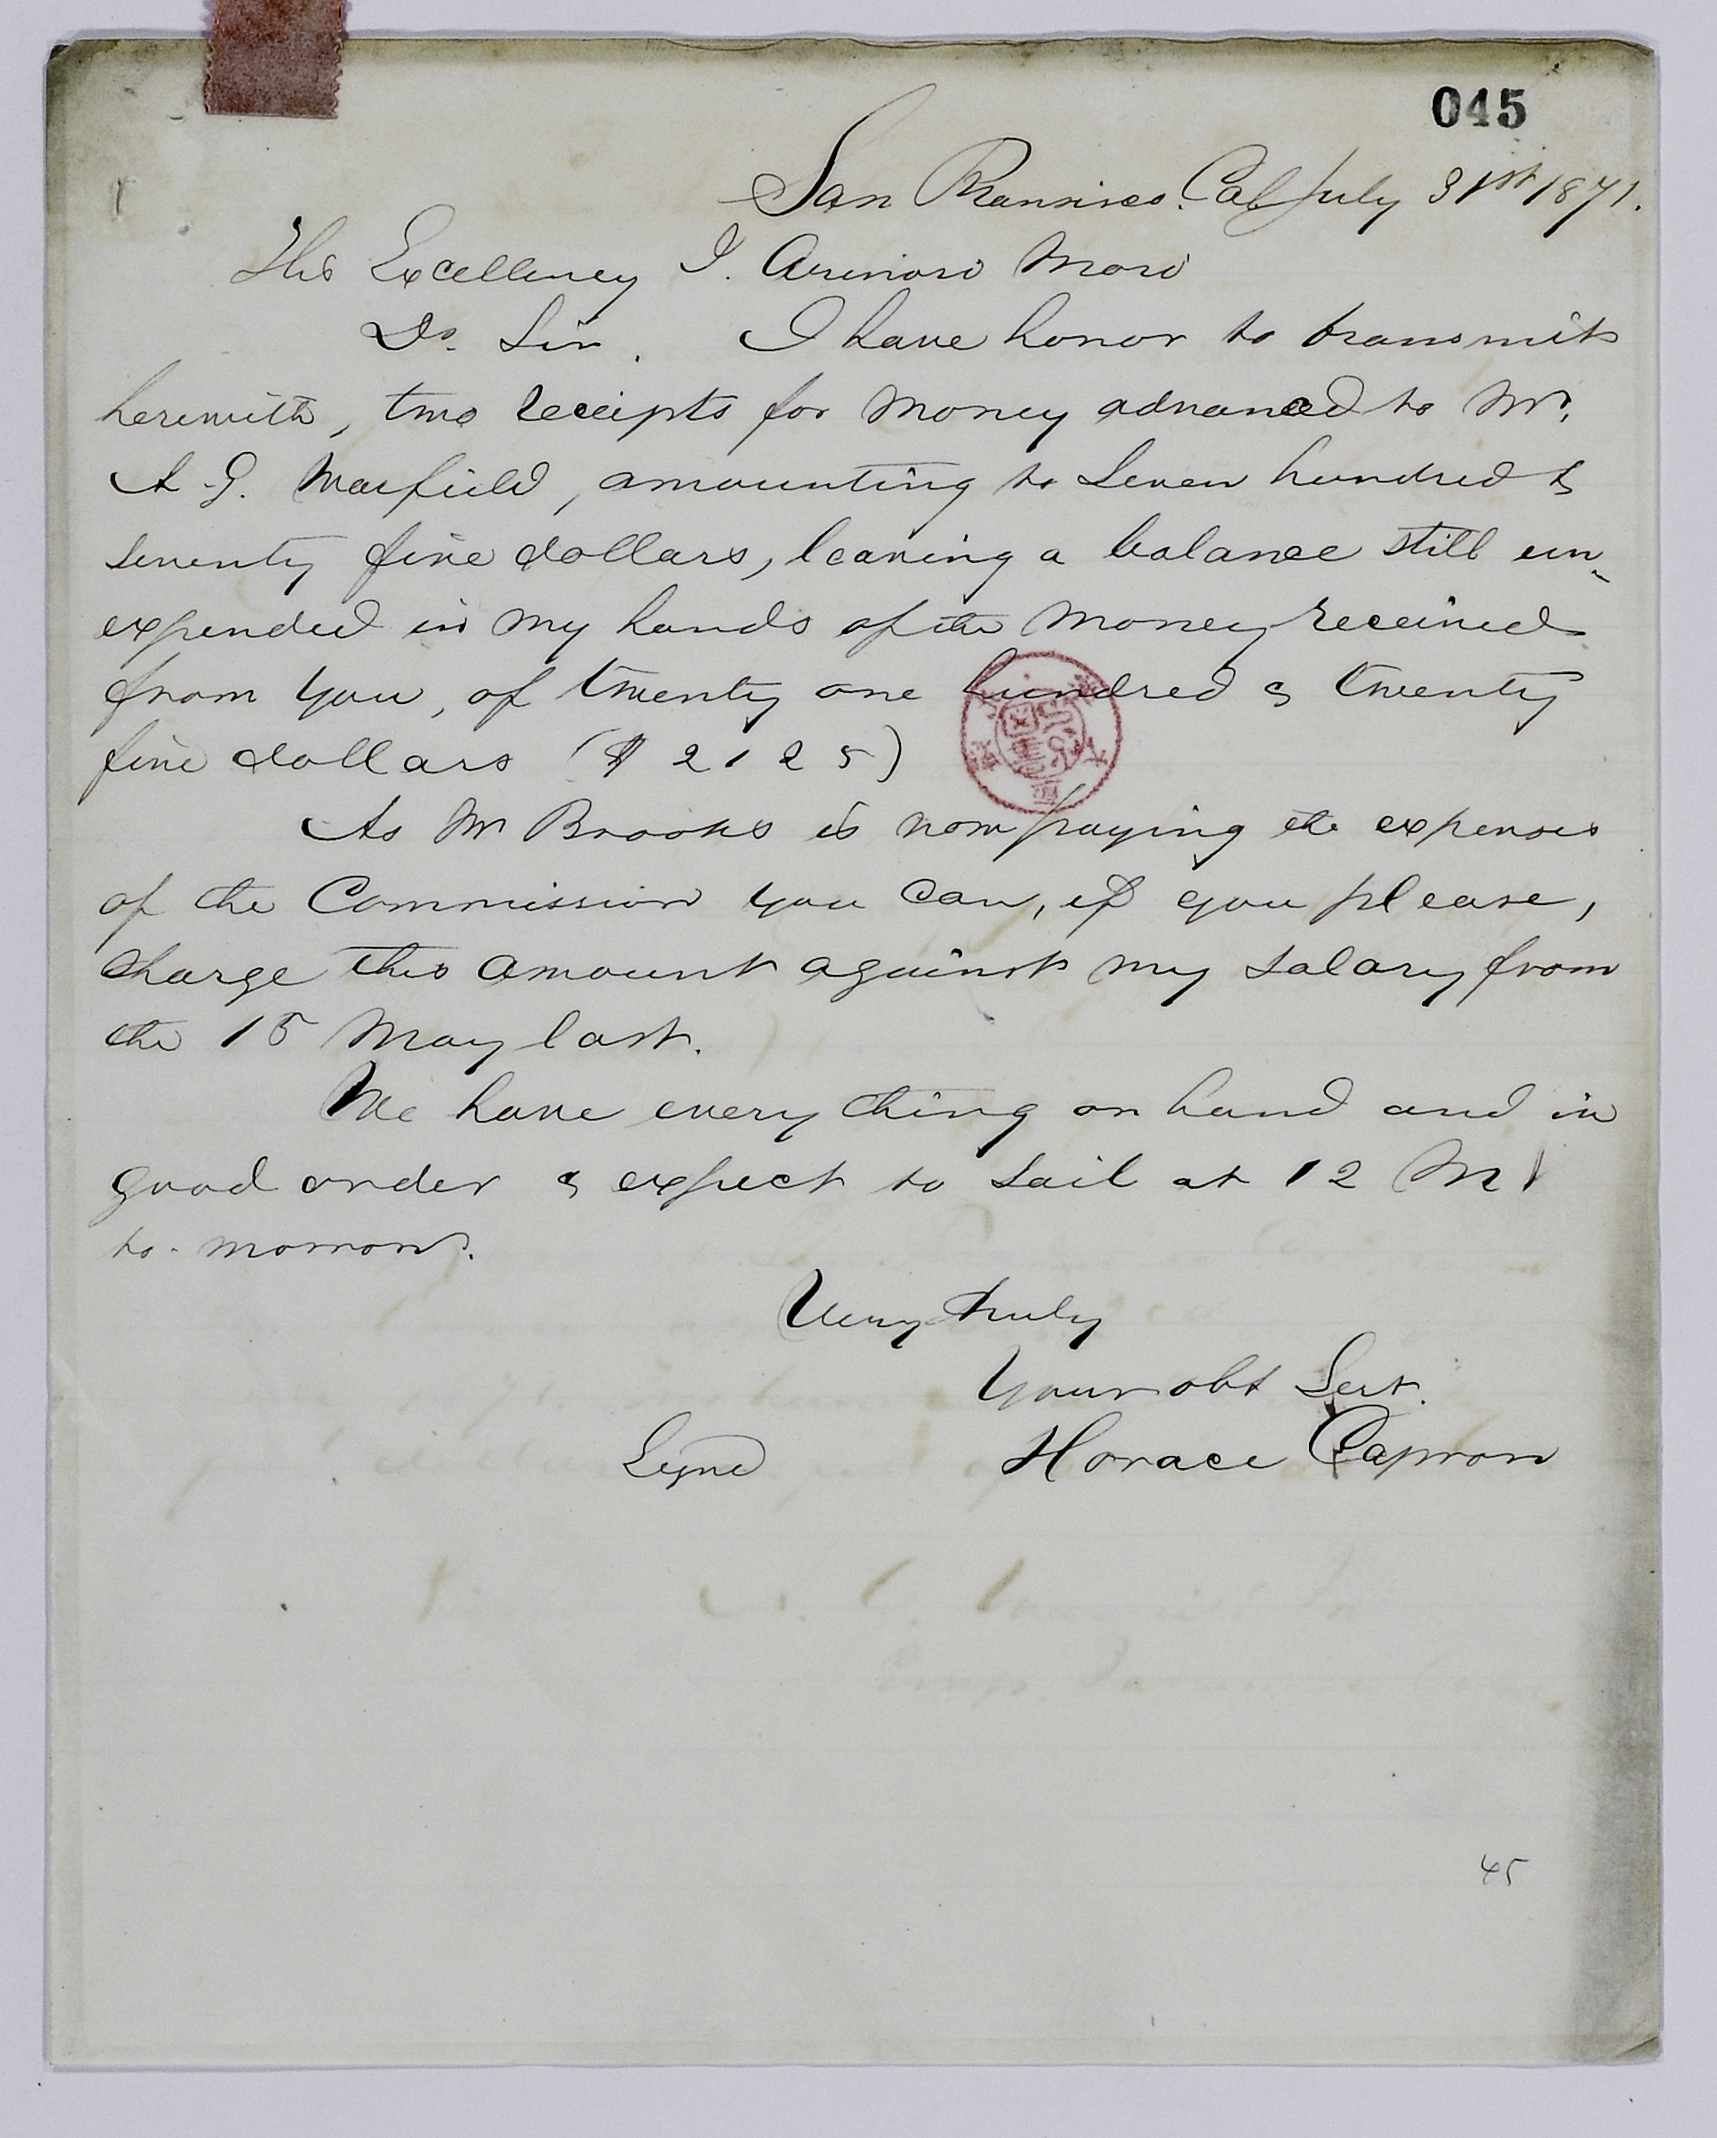 045
San Francisco. Cal July 31st 1871.
His Excellency J. Arinori Mori
Dr. Sir. I have honor to transmit
herewith, two receipts for money advanced to Mr.
A. G. Warfield, amounting to Seven hundred &
seventy five dollars, leaving a balance still un-
expended in my hands of the money received
from you, of twenty one hundred & twenty
five dollars ($2125)
As Mr Brooks is now paying the expenses
of the Commission you can, if you please,
charge this amount against my salary from
the 15 May last.
We have every thing on hand and in
good order & expect to sail at 12 M
to-morrow.
Very truly
Your obt Sert.
Signd Horace Capron
45